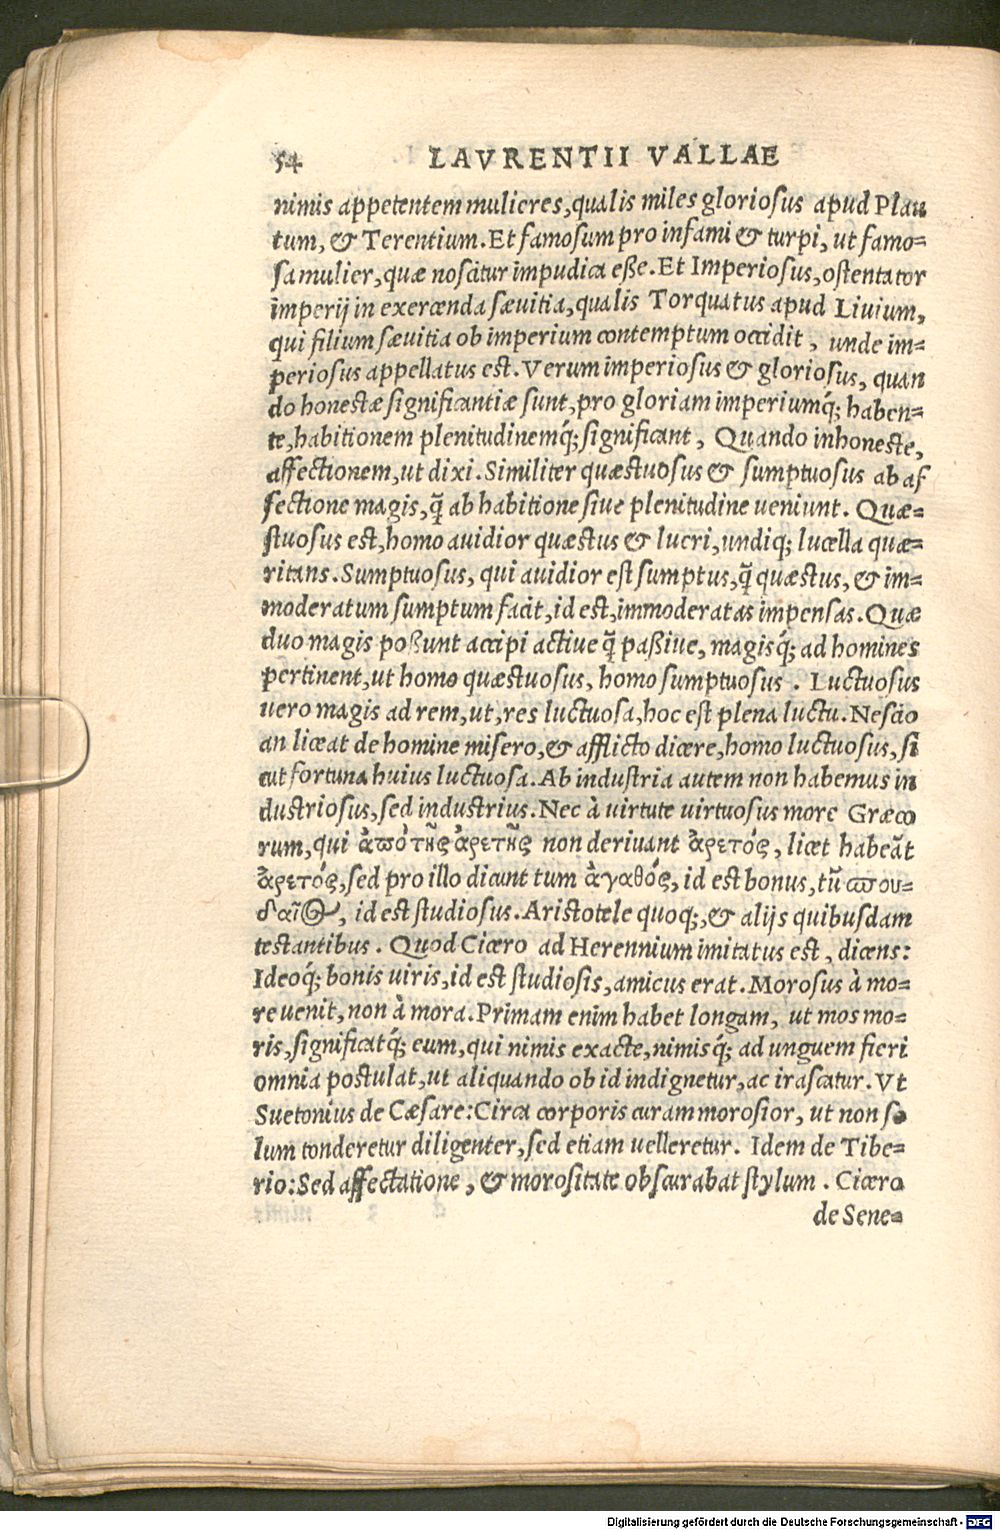 54 LAVRENTII VALLAE
nimis appetentem mulieres, qualis miles gloriosus apud Plau
tum, & Terentium. Et famosum pro infami & turpi, ut famo-
sa mulier, quæ noscitur impudica eße. Et Imperiosus, ostentator
imperij in exercenda sæuitia, qualis Torquatus apud Liuium,
qui filium sæuitia ob imperium contemptum occidit, unde im-
periosus appellatus est. Verum imperiosus & gloriosus, quan
do honestæ significantiæ sunt, pro gloriam imperiumq́; haben-
te, habitionem plenitudinemq́; significant, Quando inhonestę,
affectionem, ut dixi. Similiter quæstuosus & sumptuosus ab af
fectione magis, q̃ ab habitione siue plenitudine ueniunt. Quæ-
stuosus est, homo auidior quæstus & lucri, undiq; lucella quæ-
ritans. Sumptuosus, qui auidior est sumptus, q̃ quæstus, & im-
moderatum sumptum facit, id est, immoderatas impensas. Quæ
duo magis poßunt accipi actiue q̃ paßiue, magisq́; ad homines
pertinent, ut homo quæstuosus, homo sumptuosus. Luctuosus
uero magis ad rem, ut, res luctuosa, hoc est plena luctu. Nescio
an liceat de homine misero, & afflicto dicere, homo luctuosus, si
cut fortuna huius luctuosa. Ab industria autem non habemus in
dustriosus, sed industrius. Nec à uirtute uirtuosus more Græco
rum, qui ἀπὸ τῆς ἀρετῆς non deriuant ἀρετός, licet habeãt
ἀρετός, sed pro illo dicunt tum ἀγαθός, id est bonus, tũ σπου-
δαῖος, id est studiosus. Aristotele quoq;, & alijs quibusdam
testantibus. Quod Cicero ad Herennium imitatus est, dicens:
Ideoq́; bonis uiris, id est studiosis, amicus erat. Morosus à mo-
re uenit, non à mora. Primam enim habet longam, ut mos mo-
ris, significatq́; eum, qui nimis exacte, nimisq́; ad unguem fieri
omnia postulat, ut aliquando ob id indignetur, ac irascatur. Vt
Suetonius de Cæsare: Circa corporis curam morosior, ut non so
lum tonderetur diligenter, sed etiam uelleretur. Idem de Tibe-
rio: Sed affectatione, & morositate obscurabat stylum. Cicero
de Sene-
Digitalisierung gefördert durch die Deutsche Forschungsgemeinschaft - DFG